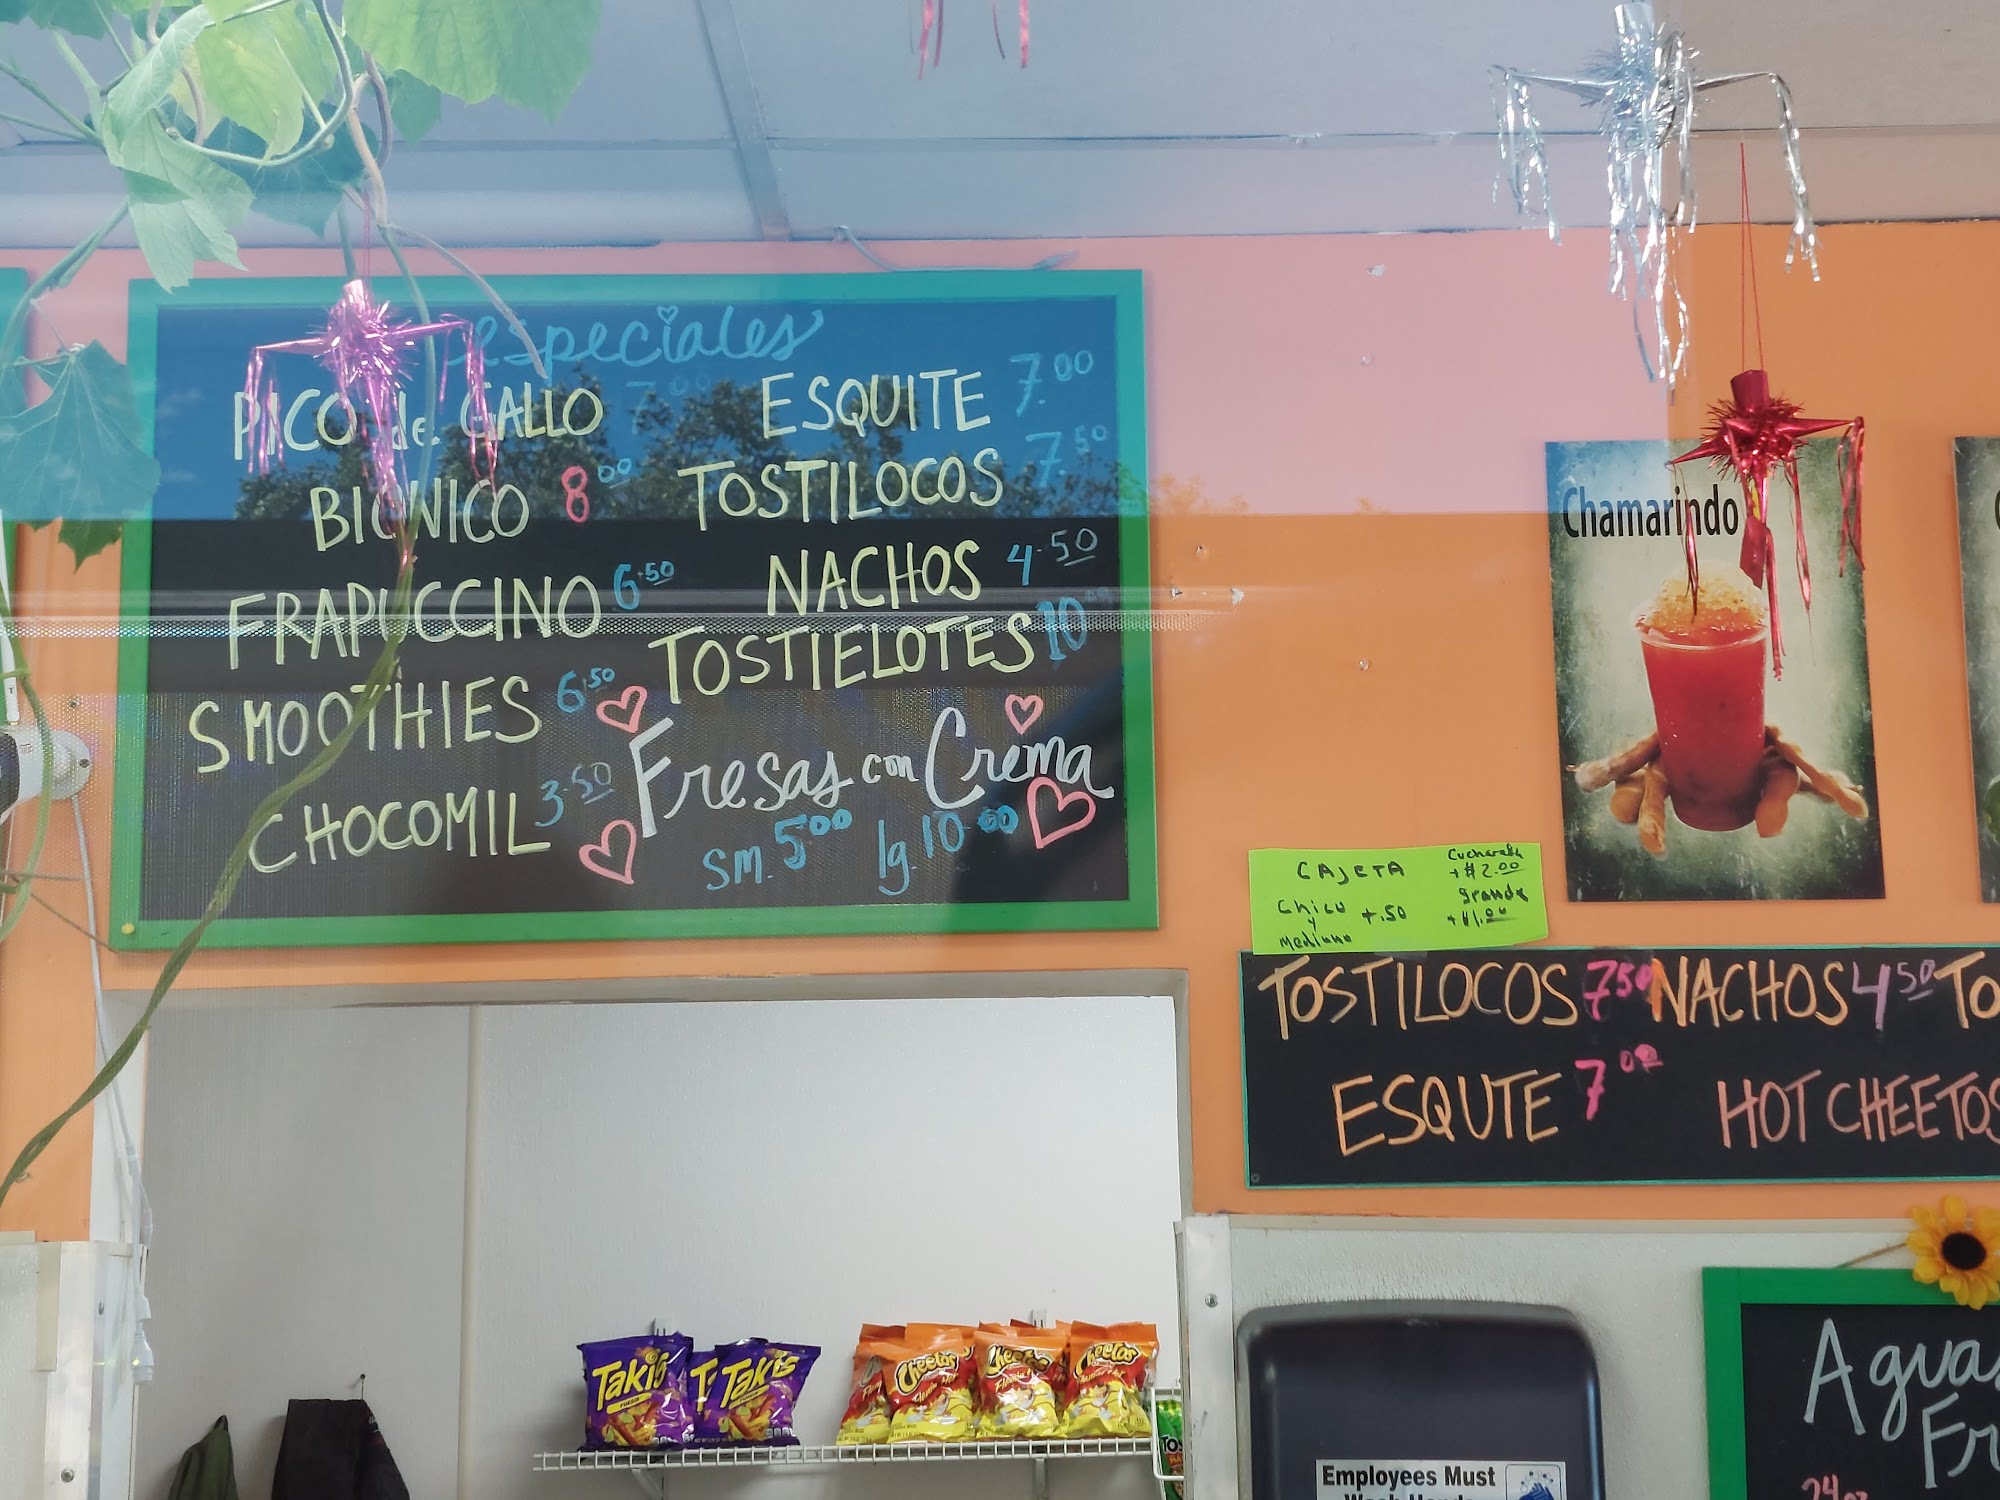 especiales
PICO de GALLO 7.00
BIONICO 8.00
FRAPUCCINO 6.50
SMOOTHIES 6.50
CHOCOMIL 3.50
ESQUITE 7.00
TOSTILOCOS 7.50
NACHOS 4.50
TOSTIELOTES 10
Fresas con Crema
sm. 5.00 lg. 10.00
Chamarindo
CAJETA
Chico
y
Mediano
+.50
+$2.00
grande
+$1.00
TOSTILOCOS 7.50 NACHOS 4.50 TO
ESQUTE 7.00 HOT CHEETOS
Takis
FUEGO
Takis
Cheetos
Flamin' Hot
Cheetos
Flamin' Hot
Cheetos
Flamin' Hot
Employees Must
Wash Hands
Aguas
Fr
24oz